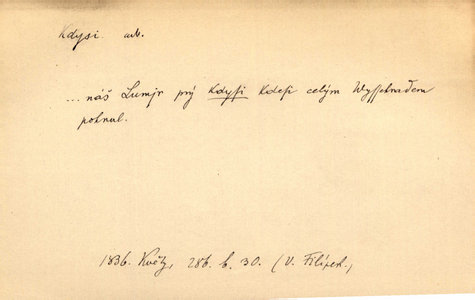 Kdysi adv.
... náš Lumjr prý kdysi kdesi celým Wyssehradem
pohnul.
1836. Květy, 286. b. 30. (V. Filípek.)